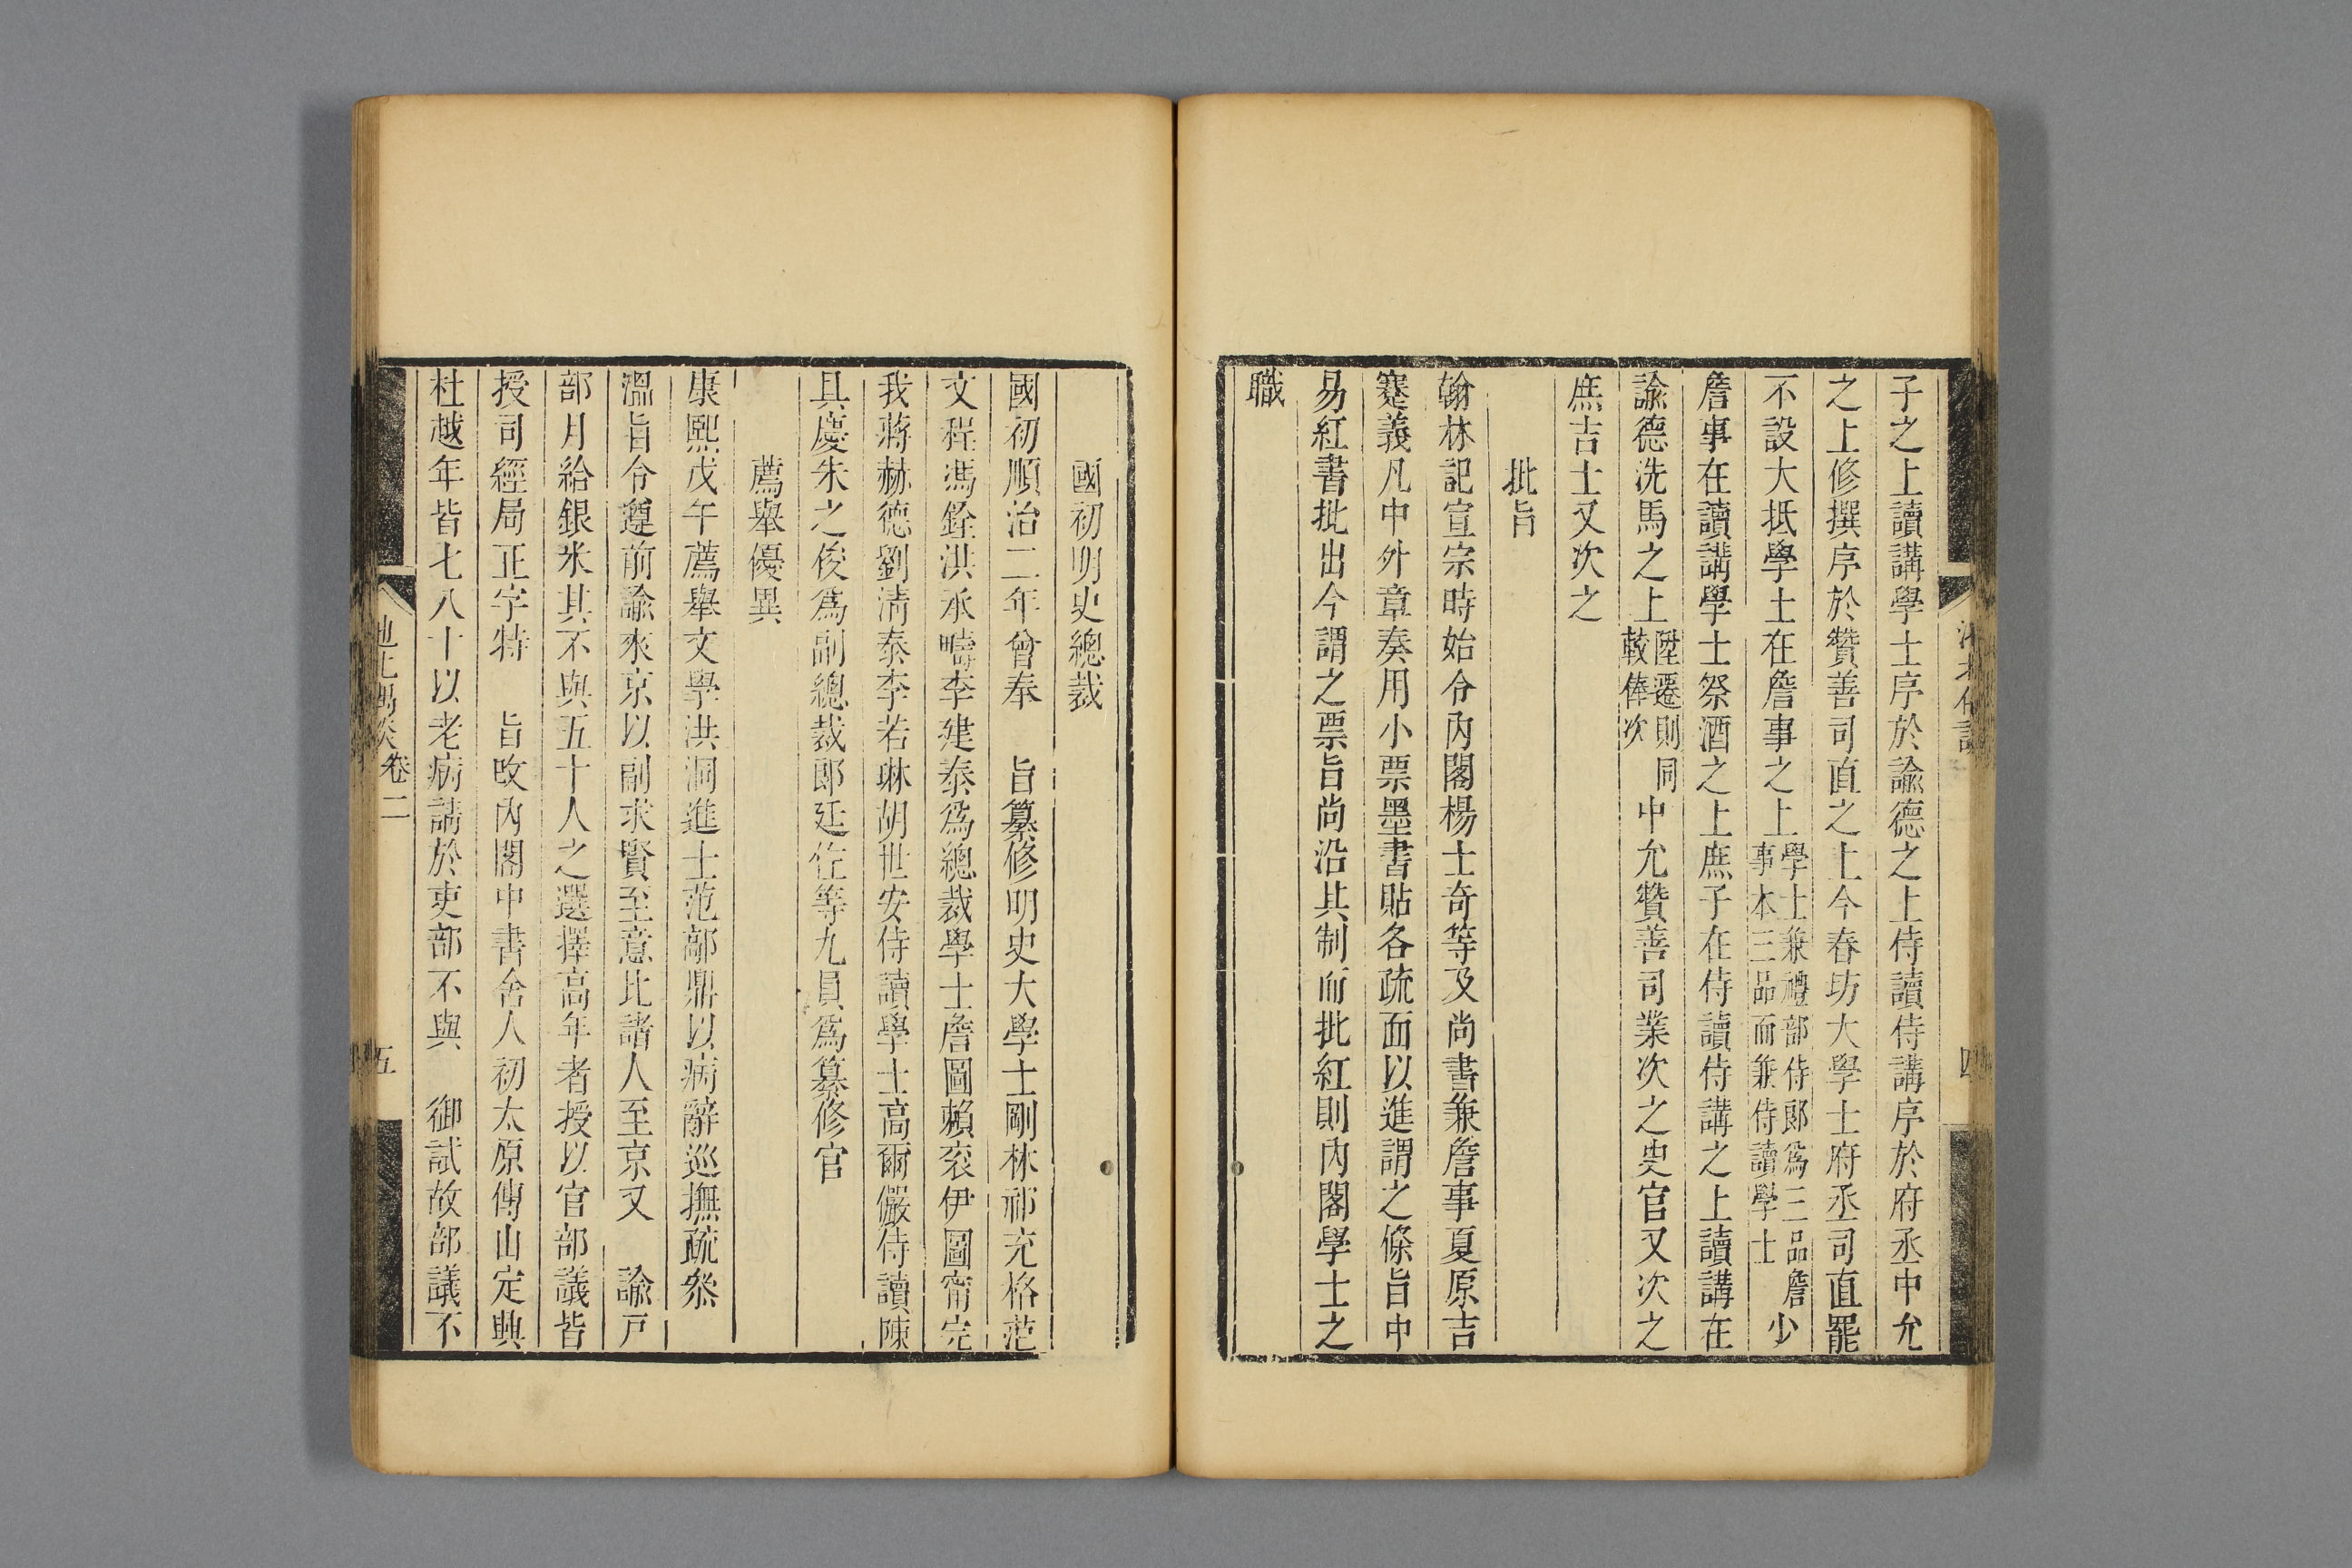 子之上讀講學士序於諭德之上侍讀侍講序於府丞中允
之上修撰序於贊善司直之上今春坊大學士府丞司直罷
不設大抵學士在詹事之上學士兼禮部侍郎爲三品詹事本三品而兼侍讀學士少
詹事在讀講學士祭酒之上庶子在侍讀侍講之上讀講在
諭德洗馬之上陞遷則同較俸次中允贊善司業次之史官又次之
庶吉士又次之
批旨
翰林記宣宗時始令內閣楊士奇等及尚書兼詹事夏原吉
蹇義凡中外章奏用小票墨書貼各疏面以進謂之條旨中
易紅書批出今謂之票旨尚沿其制而批紅則內閣學士之
職
國初明史總裁
國初順治二年曾奉 旨纂修明史大學士剛林祁充格范
文程馮銓洪承疇李建泰爲總裁學士詹圖賴衮伊圖甯完
我蔣赫德劉清泰李若琳胡世安侍讀學士高爾儼侍讀陳
具慶朱之俊爲副總裁郎廷佐等九員爲纂修官
薦舉優異
康熙戊午薦舉文學洪洞進士范鄗鼎以病辭巡撫疏叅
溫旨令遵前諭來京以副求賢至意比諸人至京又 諭戸
部月給銀米其不與五十人之選擇高年者授以官部議皆
授司經局正字特 旨改內閣中書舍人初太原傅山定興
杜越年皆七八十以老病請於吏部不與 御試故部議不
池北偶談卷二 五